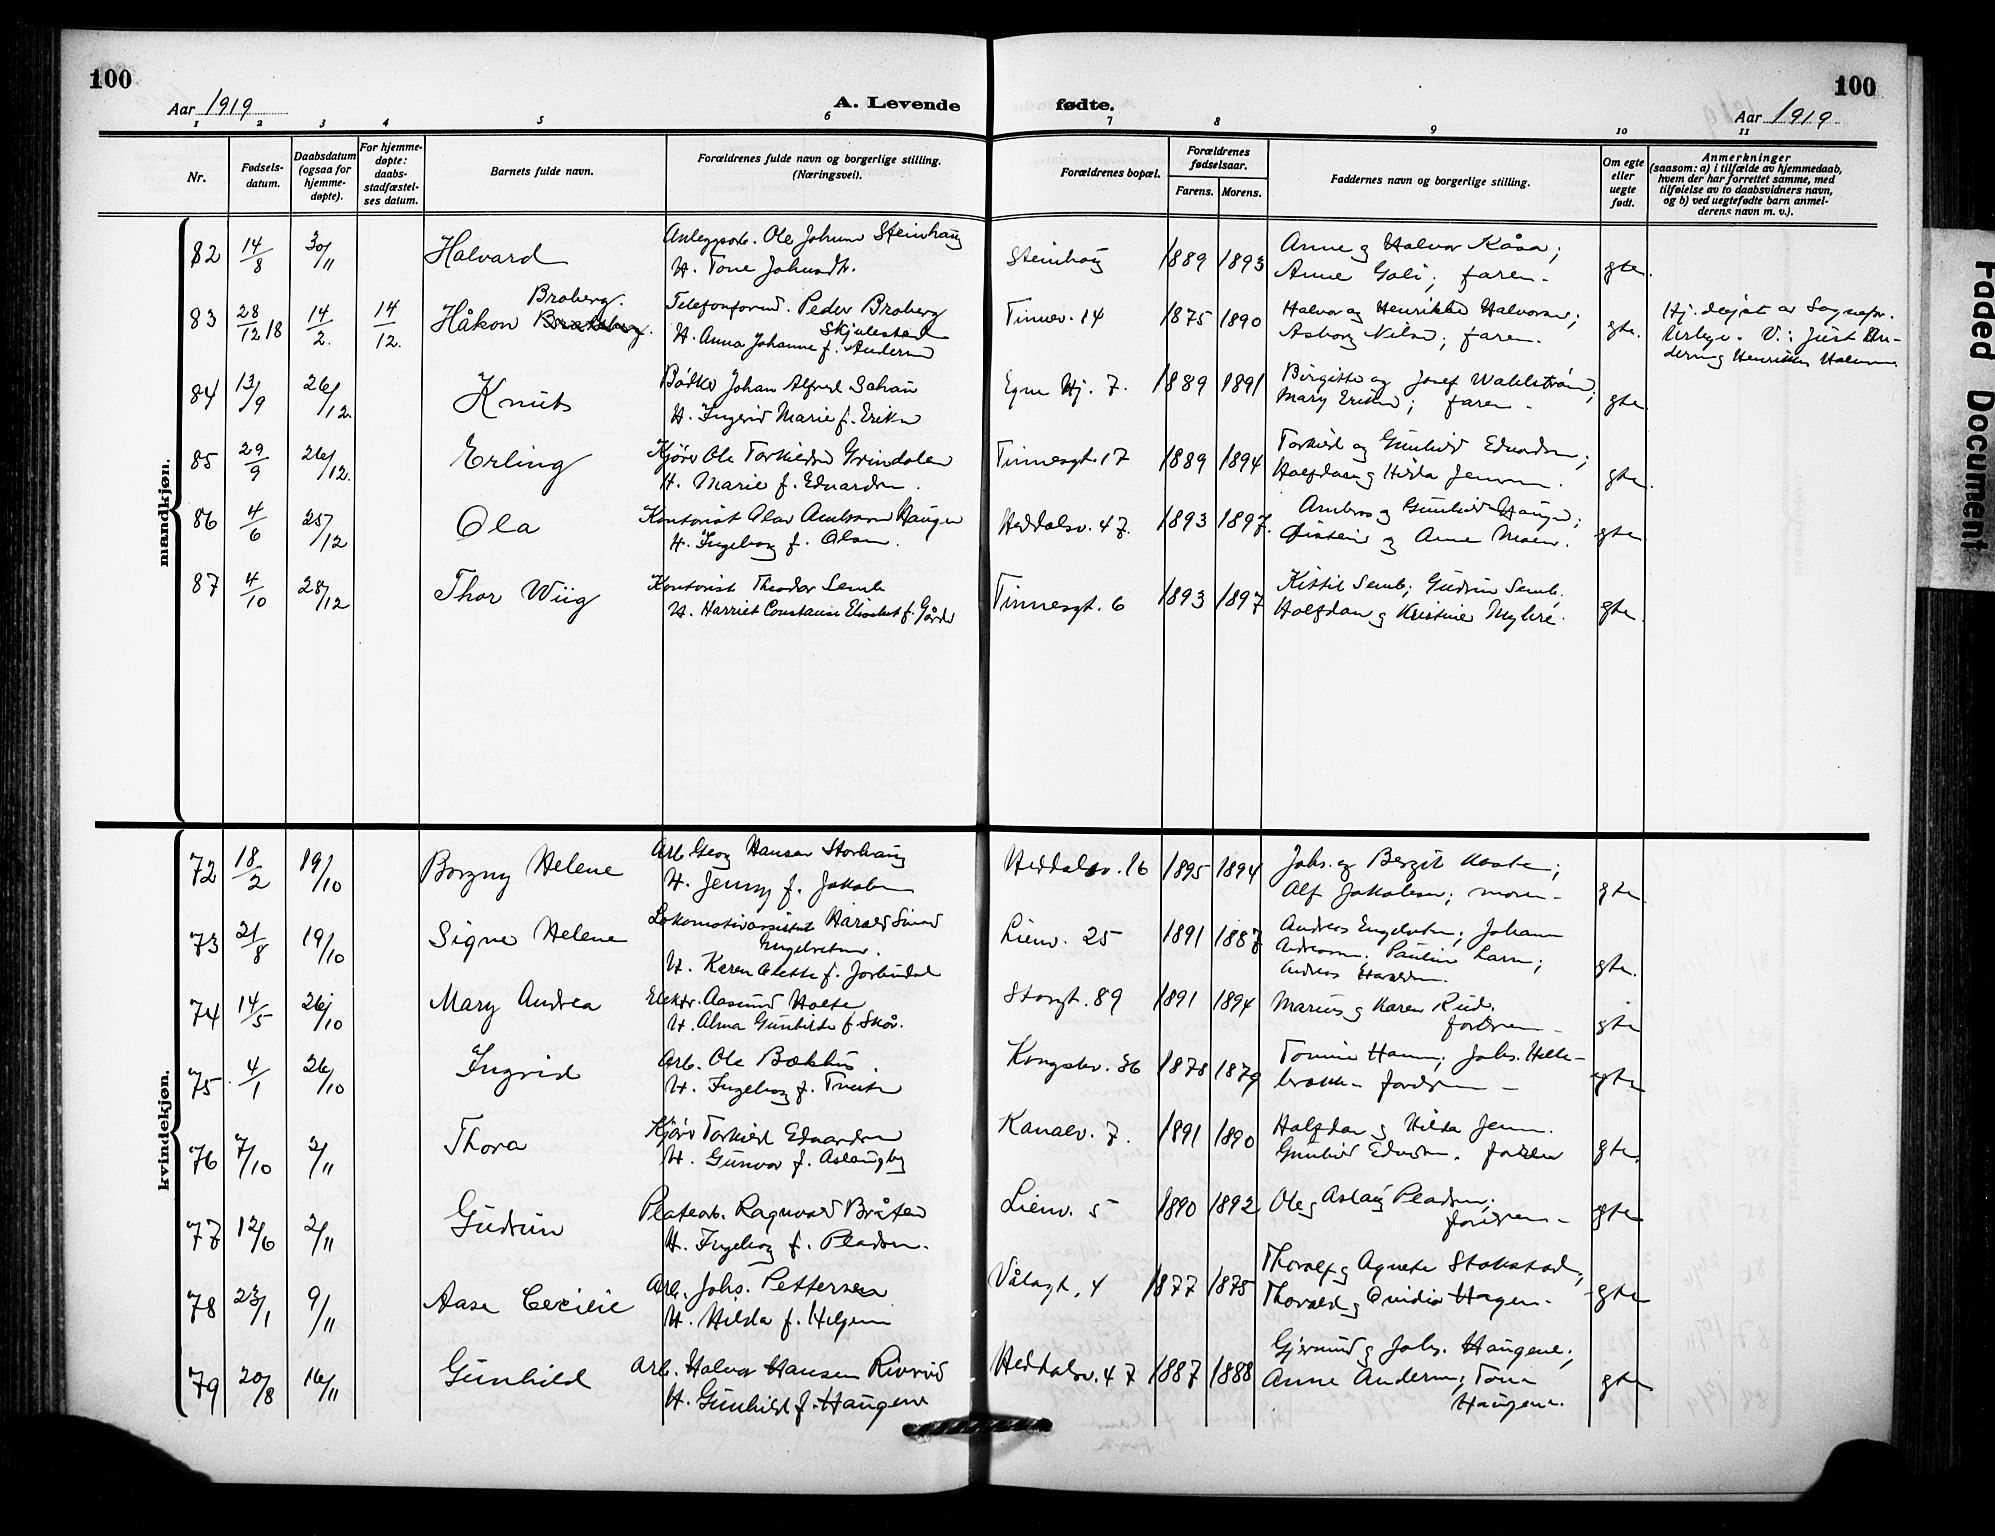 100
Aar 1919
A. Levende
fødte.
Aar 1919
100
1 2 3 4 5 6 7 8 9 10 11
Nr.
Fødsels-
datum.
Daabsdatum
(ogsaa for
hjemme-
døpte).
For hjemme-
døpte:
daabs-
stadfæstel-
ses datum.
Barnets fulde navn.
Forældrenes fulde navn og borgerlige stilling.
(Næringsvei).
Forældrenes bopæl.
Forældrenes
fødselsaar.
Farens. Morens.
Faddernes navn og borgerlige stilling.
Om egte
eller
uegte
født.
Anmerkninger
(saasom: a) i tilfælde av hjemmedaab,
hvem der har forrettet samme, med
tilføielse av to daabsvidners navn,
og b) ved uegtefødte barn anmel-
derens navn m. v.).
mandkjøn.
82 14/8 30/11 Halvard
Anleggsarb. Ole Johnsen Steinhaug
H. Tone Johnsdtr.
Steinhaug 1889 1893
Anne og Halvor Kåsa;
Anne Goli; faren.
gte.
83 28/12 18 14/2. 14/12. Håkon Broberg.
Telefonforvd. Peder Broberg
H. Anna Johanne f. Skjulestad
Tinnev. 14 1875 1890
Halvor og Henrikke Halvorsen;
Asborg Nilsen; faren.
gte.
Hj. døpt av Sognepr.
V.: Just An-
dersen og Henrikke Halvorsen
84 13/9 26/12. Knut
Bødker Johan Alfred Schau
H. Ingrid Marie f. Eriksen
Egne Hj. 7. 1889 1891
Birgitte og Josef Wahlstrøm;
Mary Eriksen; faren.
gte.
85 29/9 26/12. Erling
Kjører Ole Torkildsen Grindalen
H. Marie f. Edvardsen.
Tinnesgt. 17 1889 1894
Torkild og Gunhild Edvardsen;
Halfdan og Hilda Jensen.
gte.
86 4/6 25/12 Ola
Kontorist Olav Haugen
H. Ingeborg f. Olsen.
Heddalsv. 47. 1893 1897.
Ambros og Gunhild Haugen;
Øistein og Anne Moen.
gte.
87 4/10 28/12 Thor Wiig
Kontorist Theodor Semb
H. Harriet Constanse Elisabet f. Gårder
Tinnesgt. 6 1893 1897
Kittil Semb; Gudrun Semb.
Halfdan og Kristine Myhre.
gte.
kvindekjøn.
72 18/2 19/10 Borgny Helene
Arb. Georg Hansen Storhaug
H. Jenny f. Jakobsen
Heddalsv. 16 1895 1894
Johs. og Bergit Hoste;
Alf Jakobsen; moren.
gte
73 21/8 19/10 Signe Helene
Lokomotivassistent Harald
Engebretsen.
H. Karen f. Jorbudal
Lienv. 25 1891 1887
Andreas Engebretsen; Johann
Andreassen. Pauline Larsen;
Andreas Haraldsen.
gte.
74 14/5 26/10 Mary Andrea
Elektr. Aasmund Holte
H. Alma Gunhilde f. Skår.
Storgt. 89 1891 1894
Marius og Karen Rud.
foreldrene
gte
75 4/1 26/10 Ingrid
Arb. Ole Bækhus.
H. Ingeborg f. Tveiten
Kongsbv. 36 1878 1879
Tomine Hansen; Johs. Helle-
brokk. foreldrene
gte
76 7/10 2/11 Thora
Kjører Torkild Edvardsen
H. Gunvor f. Aslaugby
Kanalv. 7. 1891 1890
Halfdan og Hilda Jensen.
Gunhild Edvardsen. faren
gte.
77 12/6 2/11 Gudrun
Platearb. Ragnvald Bråten
H. Ingeborg f. Pladsen.
Lienv. 5 1890 1892
Ole og Aslaug Pladsen;
foreldrene
gte
78 23/1 9/11 Aase Cecilie
Arb. Johs. Pettersen
H. Hilda f. Helgesen
Vålagt. 4 1877 1875
Thoralf og Agnete Stokstad;
Thorald og Ovidia Hagen.
gte
79 20/8 16/11 Gunhild
Arb. Halvor Hansen Rivrud
H. Gunhild f. Haugene
Heddalsv. 47 1887 1888
Gjermund og Johs. Haugene;
Anne Andersen; Tone
Haugene.
gte
Faded Document